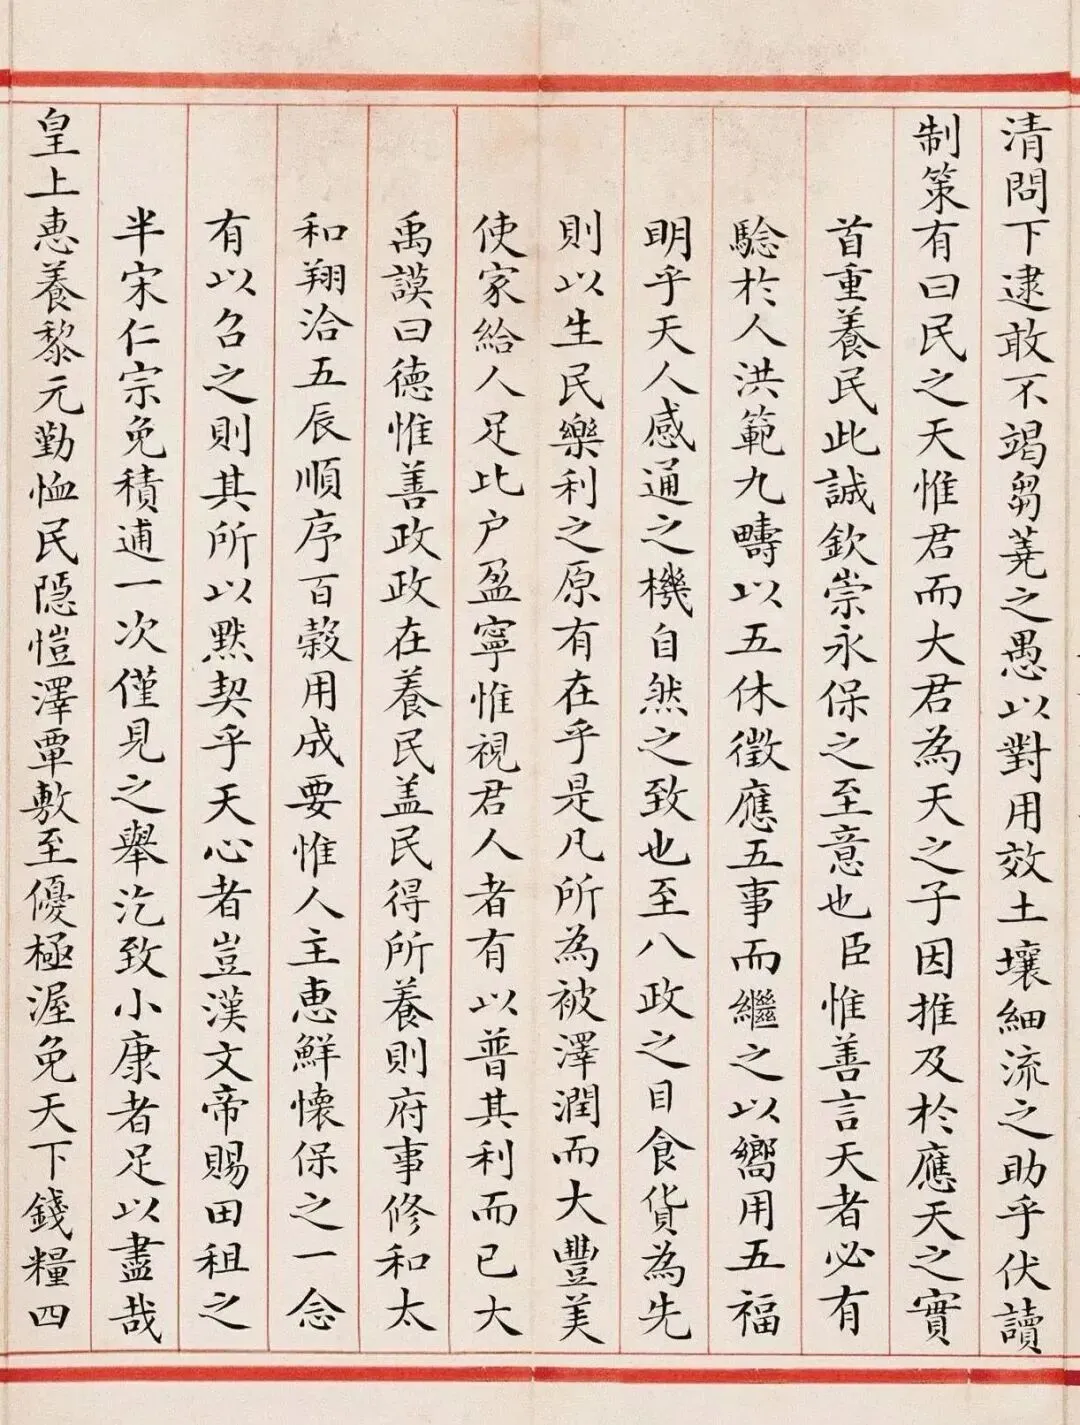 清問下逮敢不竭芻蕘之愚以對用效土壤細流之助乎伏讀
制策有曰民之天惟君而大君為天之子因推及於應天之實
首重養民此誠欽崇永保之至意也臣惟善言天者必有
騐於人洪範九疇以五休徵應五事而繼之以嚮用五福
明乎天人感通之機自然之致也至八政之目食貨為先
則以生民樂利之原有在乎是凡所為被澤潤而大豐美
使家給人足比户盈寧惟視君人者有以普其利而已大
禹謨曰德惟善政政在養民盖民得所養則府事修和太
和翔洽五辰順序百穀用成要惟人主惠鮮懐保之一念
有以召之則其所以黙契乎天心者豈漢文帝賜田租之
半宋仁宗免積逋一次僅見之舉汔致小康者足以盡哉
皇上惠養黎元勤恤民隠愷澤覃敷至優極渥免天下錢糧四